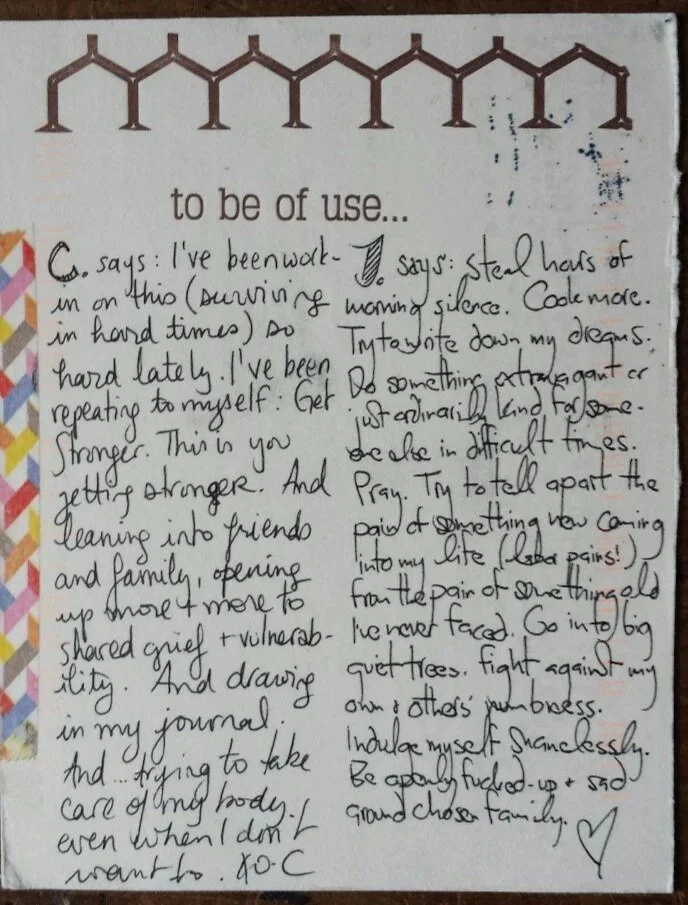 to be of use...
C. says: I've been work-
in on this (surviving
in hard times) so
hard lately. I've been
repeating to myself: Get
Stronger. This is you
getting stronger. And
leaning into friends
and family, opening
up more + more to
shared grief + vulnerab-
ility. And drawing
in my journal.
And... trying to take
care of my body
even when I don't
want to. XO-C
J. says: Steal hours of
morning silence. Cook more.
Try to write down my dreams.
Do something extravagant or
just ordinarily kind for some-
one else in difficult times.
Pray. Try to tell apart the
pain of something new coming
into my life (labor pains!)
from the pain of something old
I've never faced. Go into big
quiet trees. Fight against my
own & others' numbness.
Indulge myself shamelessly.
Be openly fucked-up + sad
around chosen family.